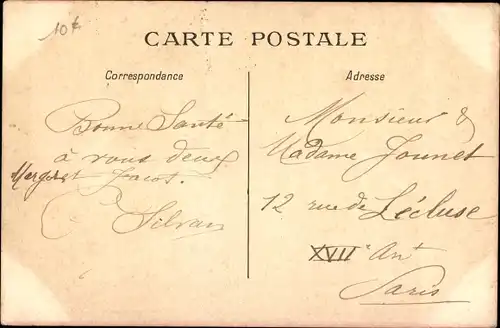 10 €
CARTE POSTALE
Correspondance
Adresse
Bonne Santé
à vous deux
Jacot.
Silvain
Monsieur &
Madame Jounet
12 rue de Lécluse
XVII e Art
Paris